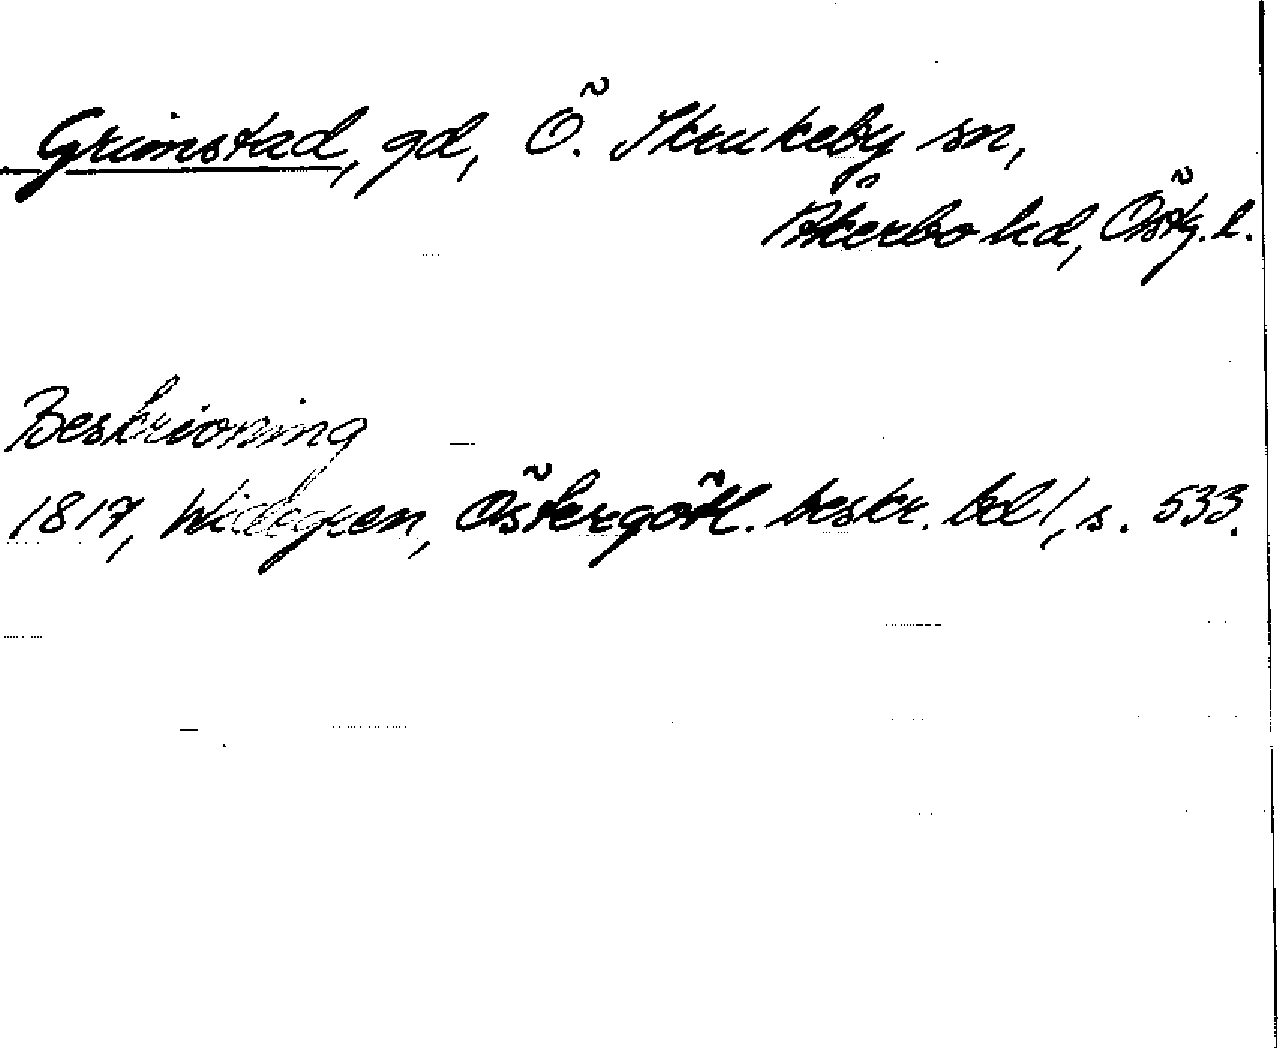 Grimstad, gd, Ö. Skrukeby sn,
Åkerbo hd, Östg. l.
Beskrivning
1817, Widegren, Östergötl. beskr. bd 1, s. 533.